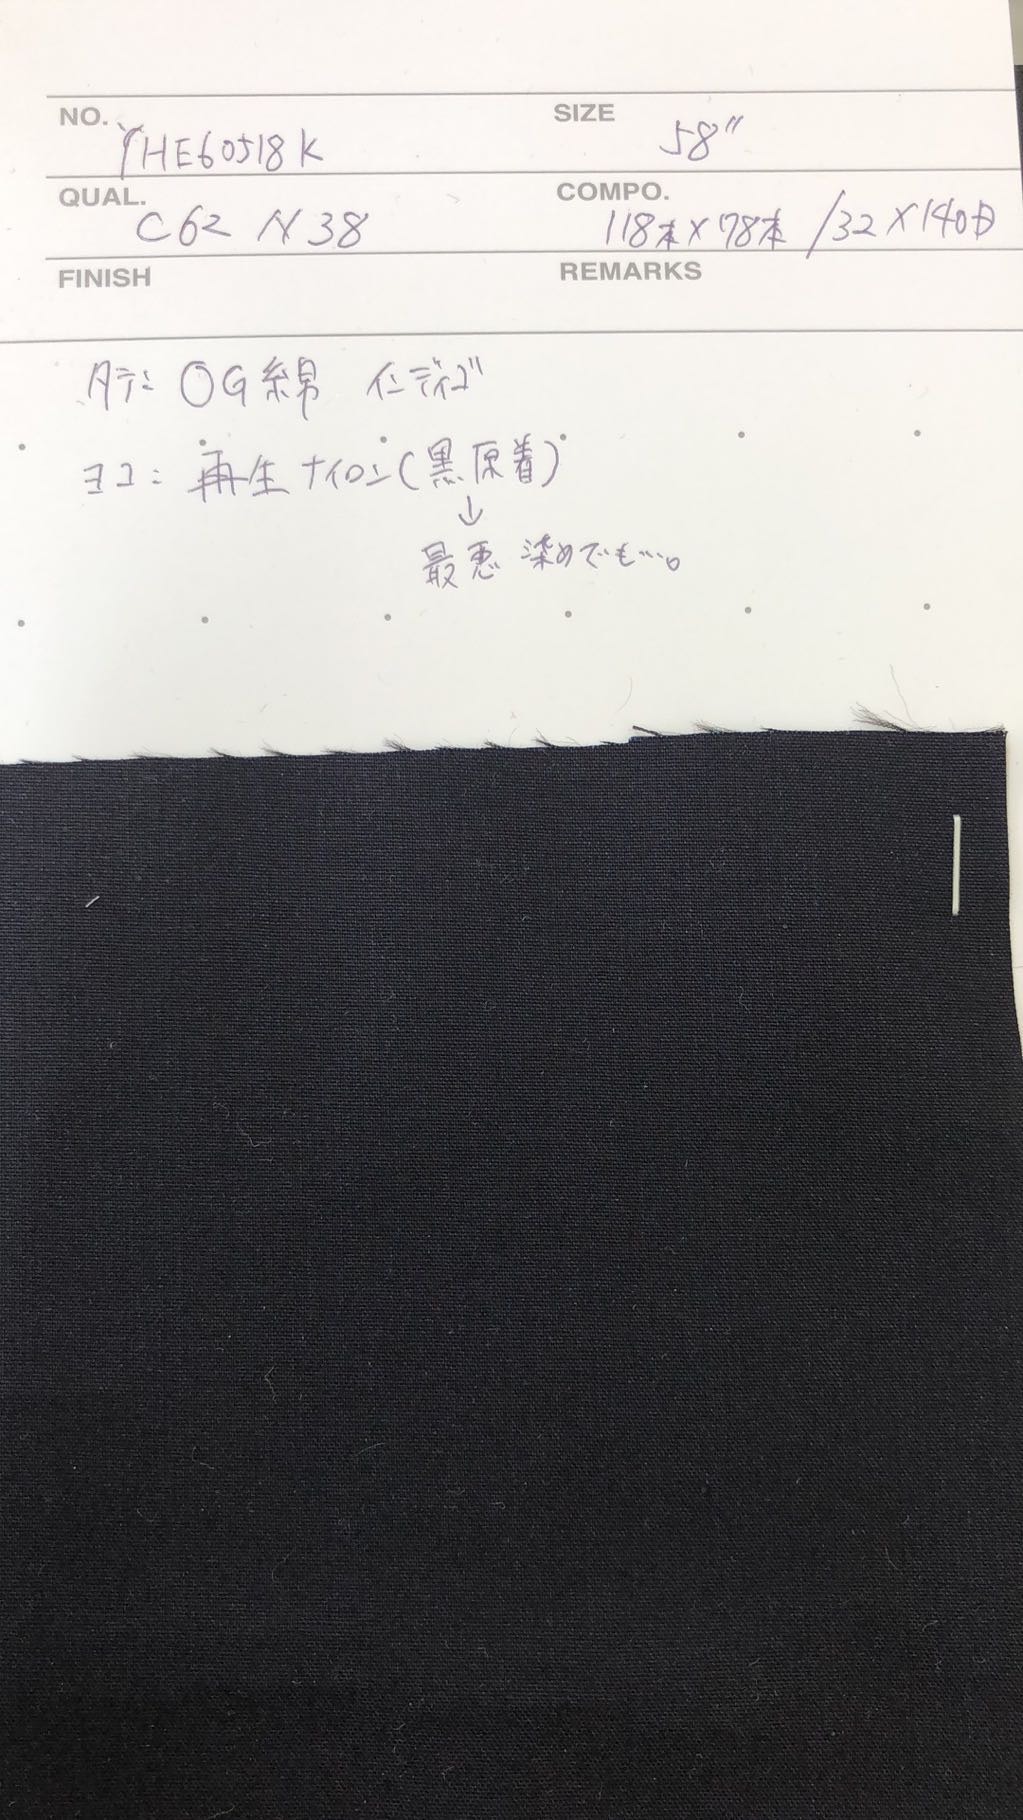 NO. YHE60518K
SIZE 58"
QUAL. C62 N38
COMPO. 118本×78本 /32×140D
FINISH
REMARKS
タテ: OG綿 インディゴ
ヨコ: 再生ナイロン(黒原着)
↓
最悪 染めでも…。